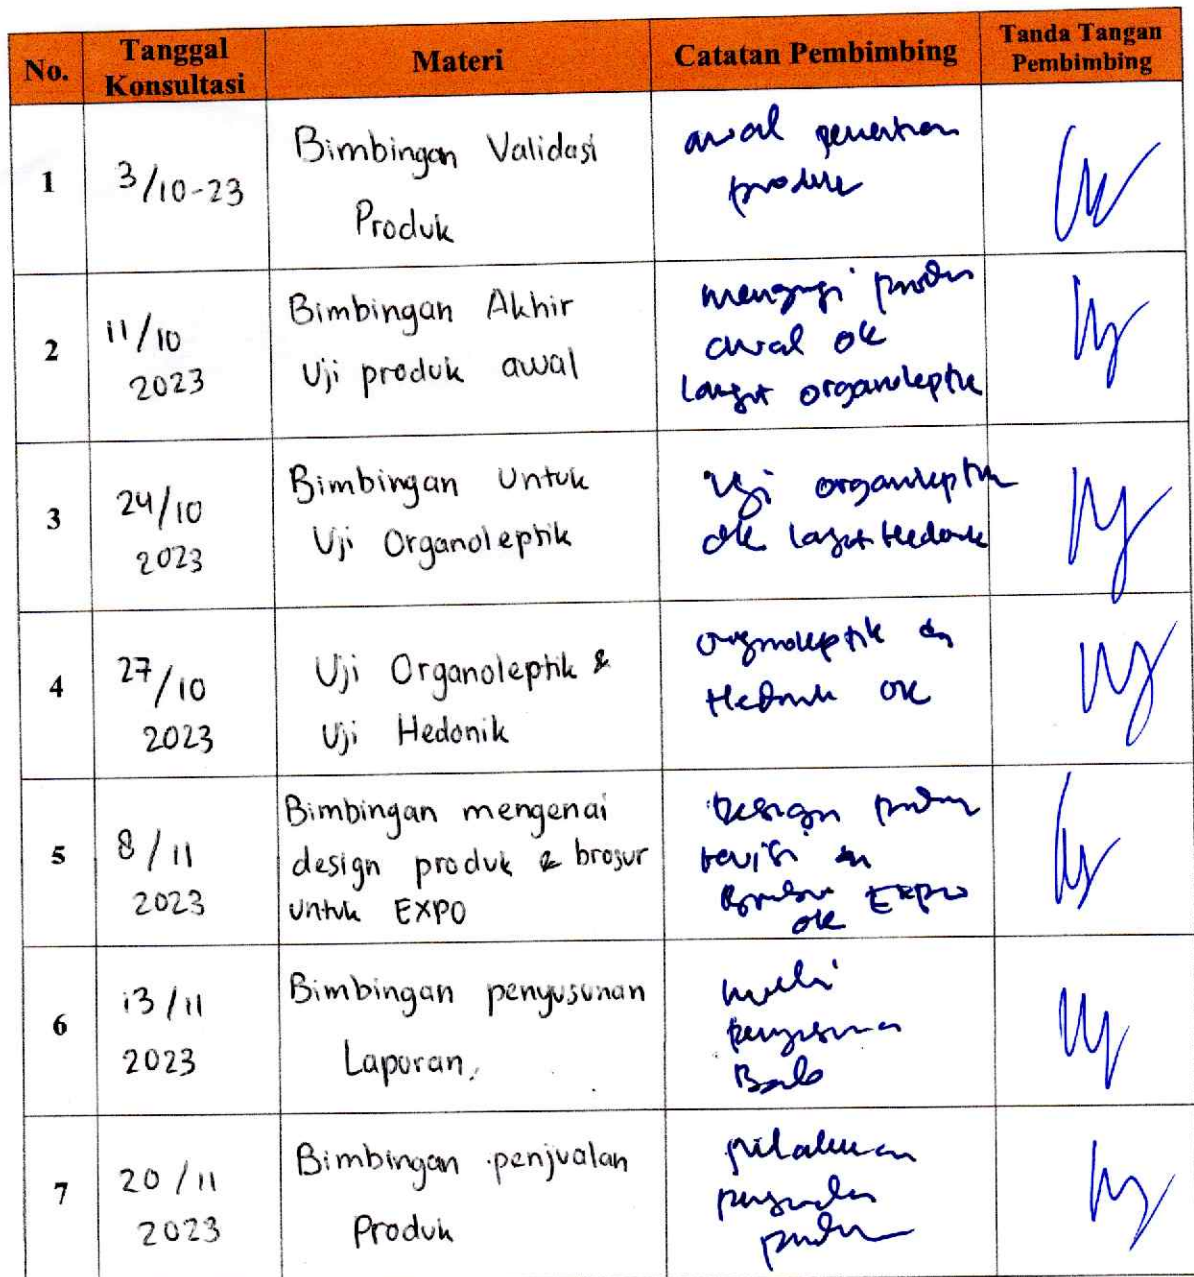 No.
Tanggal
Konsultasi
Materi
Catatan Pembimbing
Tanda Tangan
Pembimbing
1
3/10-23
Bimbingan Validasi
Produk
awal
produk
2
11/10
2023
Bimbingan Akhir
Uji produk awal
awal ok
organoleptik
3
24/10
2023
Bimbingan Untuk
Uji Organoleptik
Uji organoleptik
ok Hedonik
4
27/10
2023
Uji Organoleptik &
Uji Hedonik
organoleptik
Hedonik ok
5
8/11
2023
Bimbingan mengenai
design produk & brosur
untuk EXPO
Design
revisi
EXPO
ok
6
13/11
2023
Bimbingan penyusunan
Laporan.
7
20/11
2023
Bimbingan penjualan
Produk